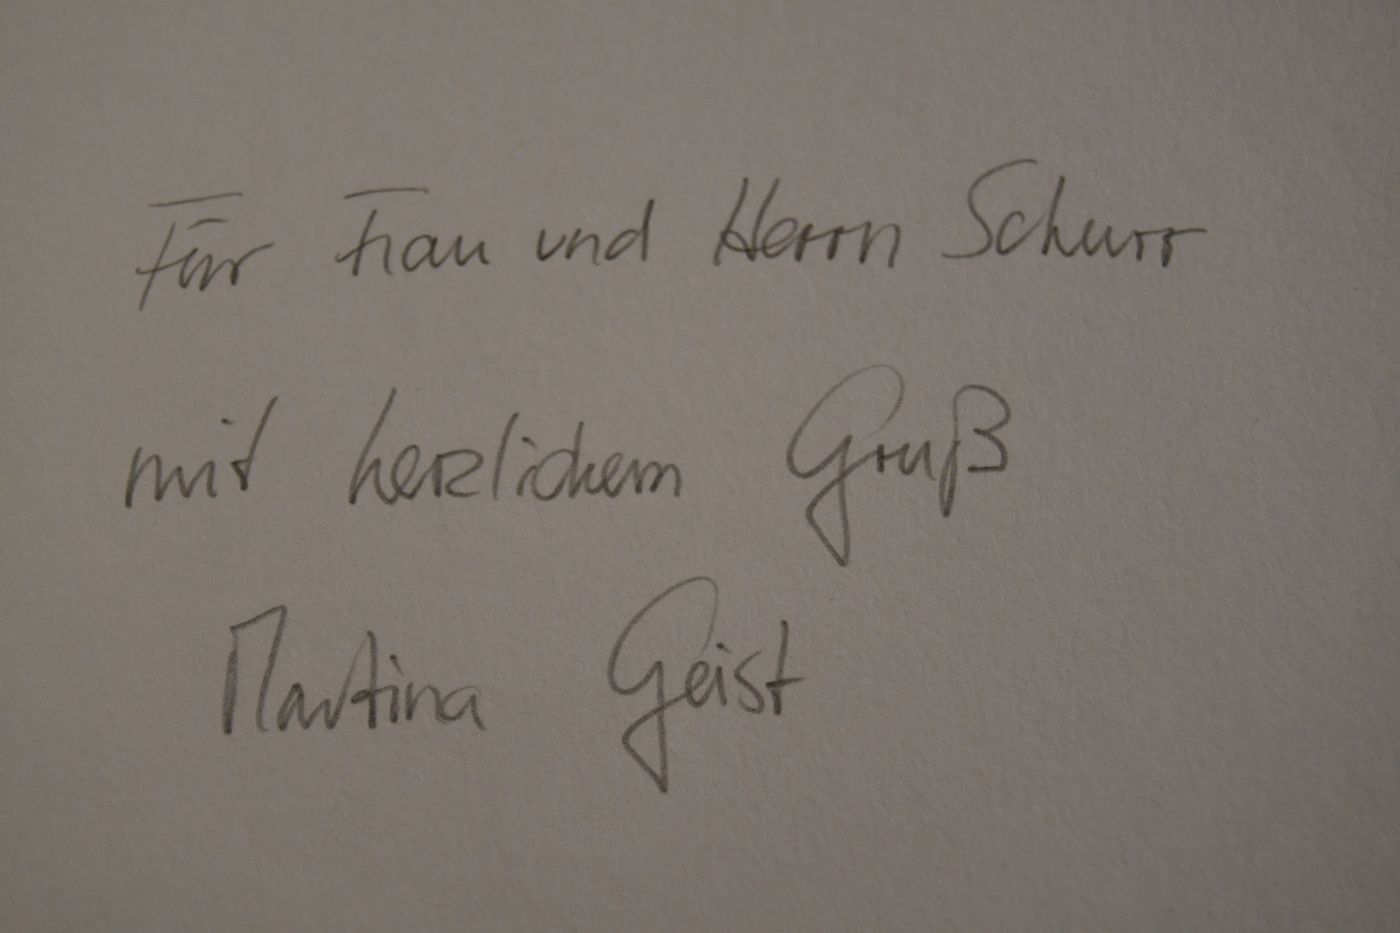 Für Frau und Herrn Schurr
mit herzlichem Gruß
Martina Geist